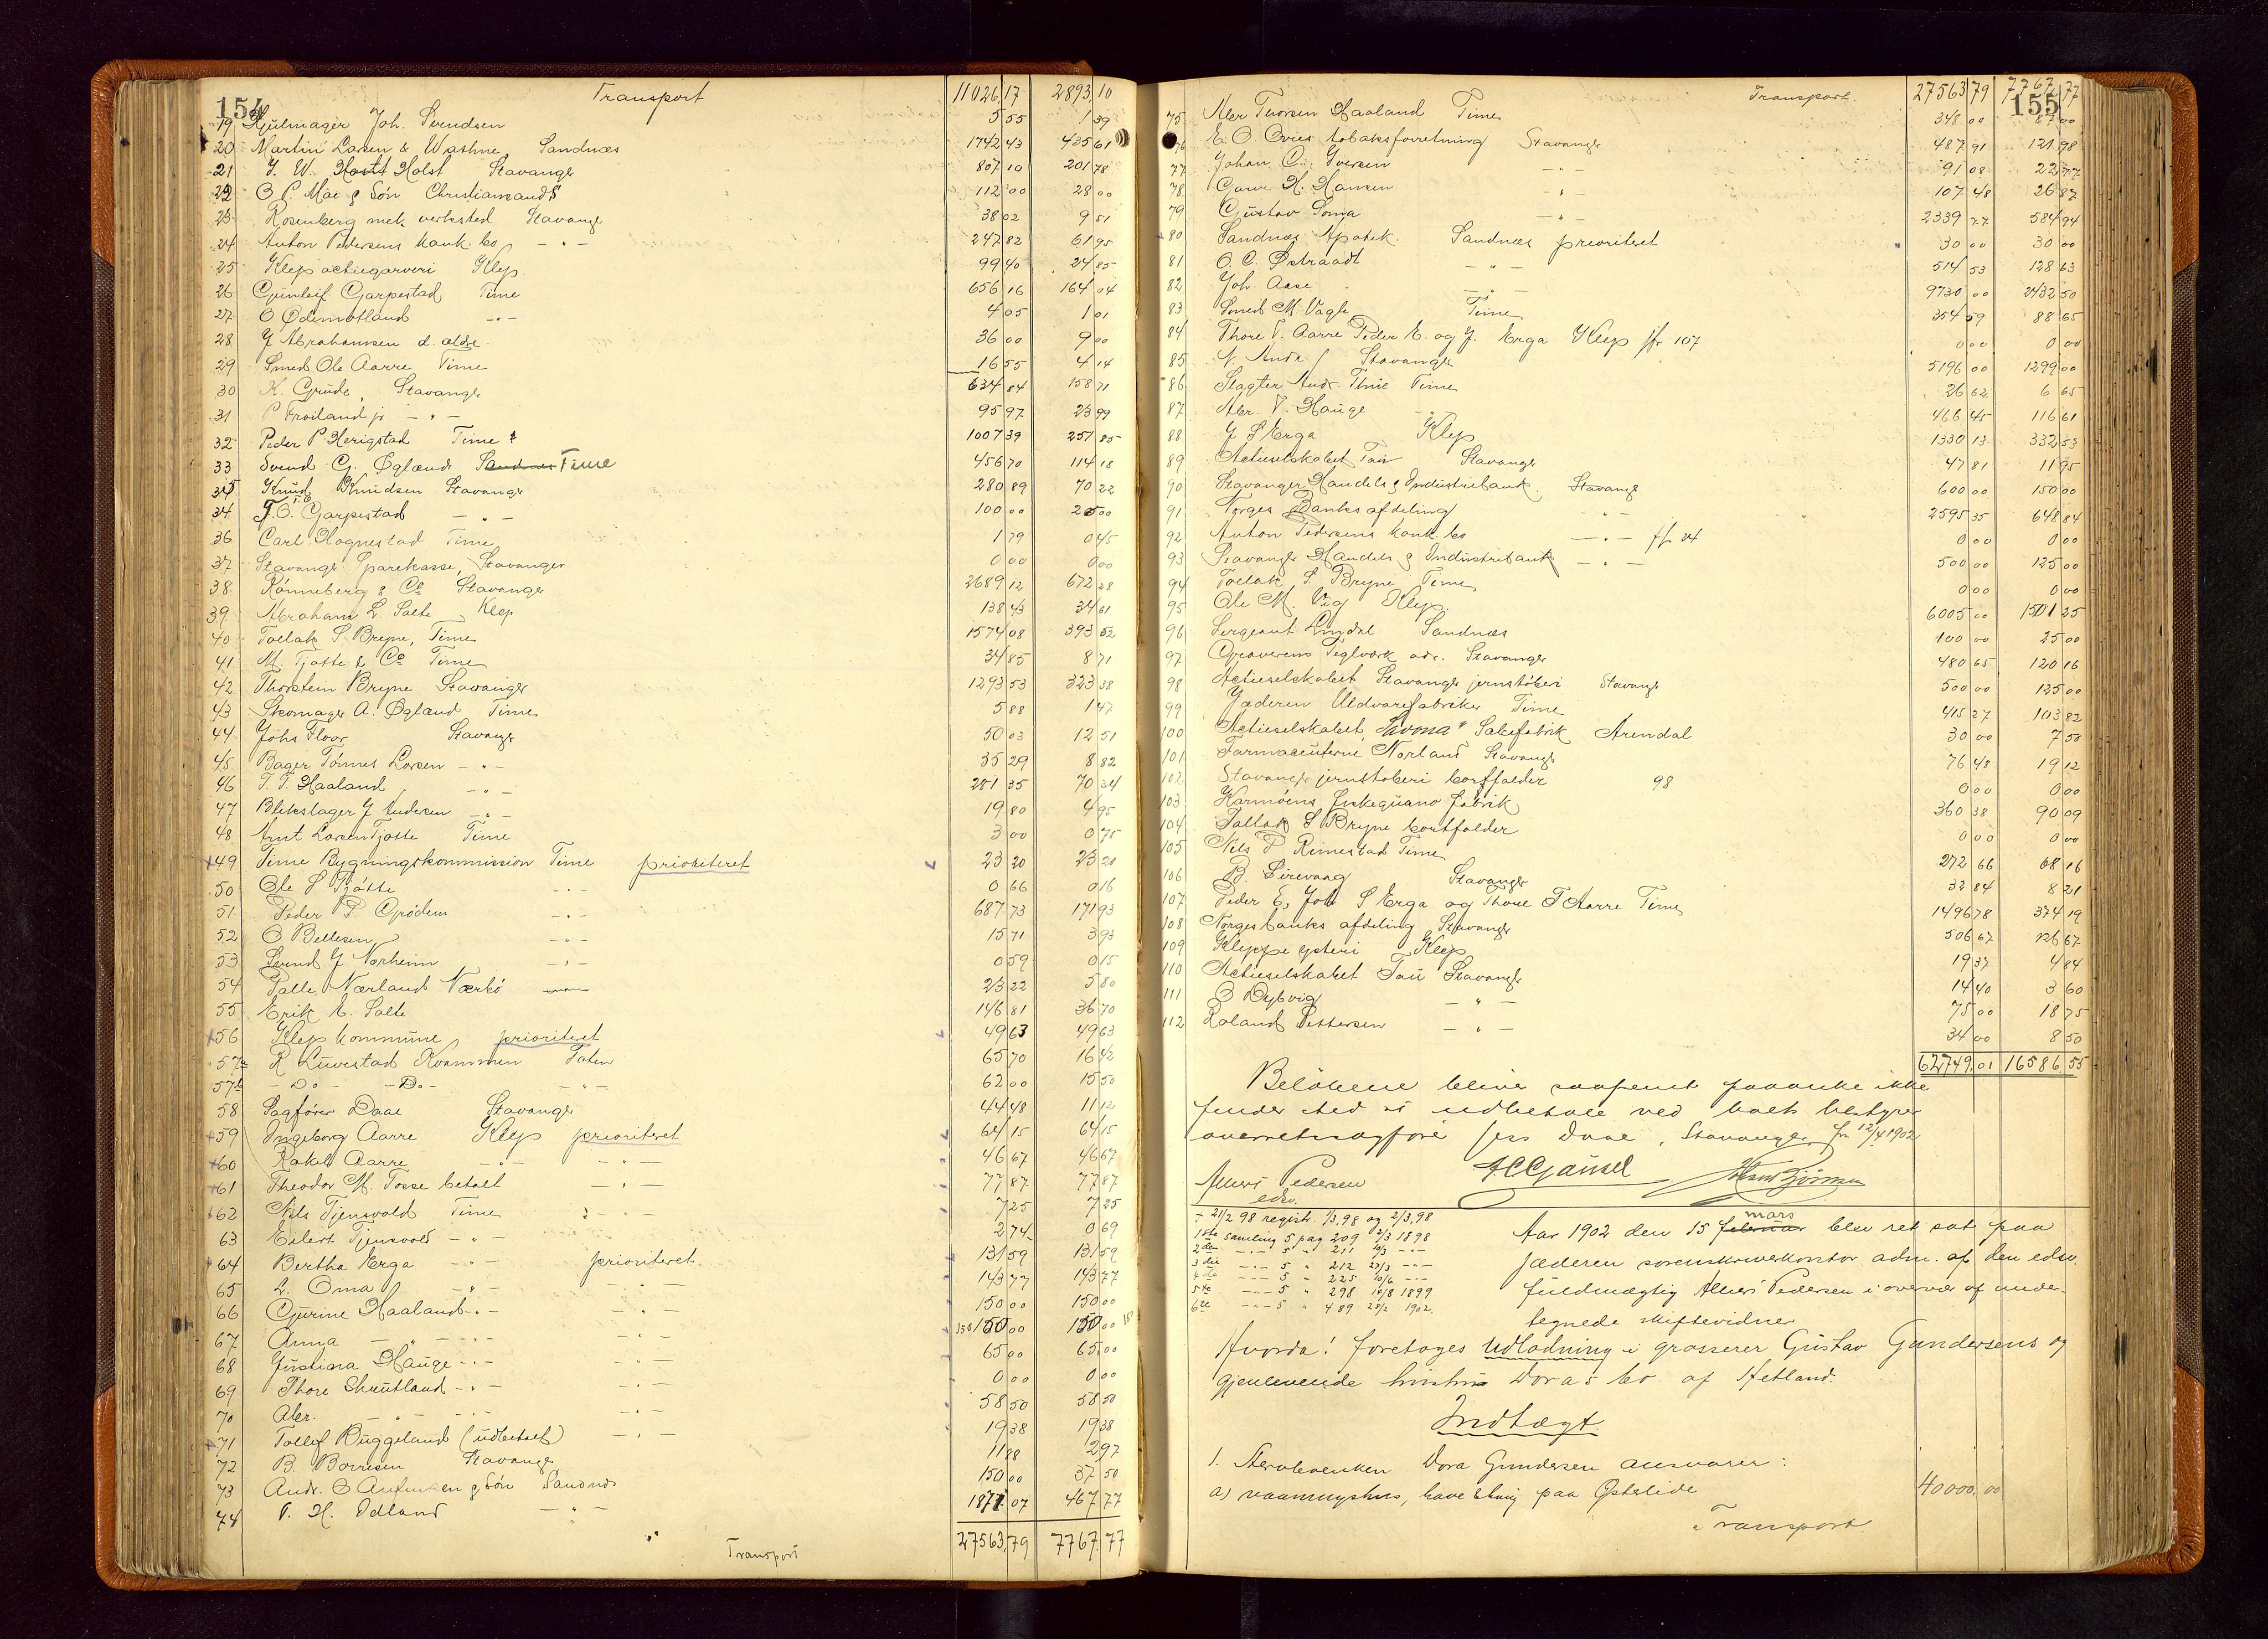 154
Transport 11026,17 2893,10
19 Hjulmager Joh. Svendsen 5 55 1 39
20 Martin Larsen & Wathne Sandnæs 1742 43 435 61
21 J. W. Holst Stavanger 807 10 201 78
22 O P. Moe & Søn ChristiansandS 112 00 28 00
23 Rosenberg mek. verksted Stavanger 38 02 9 51
24 Anton Pedersens konk. bo — " — 247 82 61 95
25 Klep actiegarveri Klep 99 40 24 85
26 Gunleif Garpestad Time 656 16 164 04
27 O Ødemotland — " — 4 05 1 01
28 J Abrahamsen d. ældre 36 00 9 00
29 Smed Ole Aarre Time 16 55 4 14
30 K. Grude, Stavanger 634 84 158 71
31 P Froiland jr — " — 95 97 23 99
32 Peder P Herigstad Time 1007 39 251 85
33 Svend G. Øglænd Sandnæs Time 456 70 114 18
35 Knud Knudsen Stavanger 280 89 70 22
34 T. O. Garpestad — " — 100 00 25 00
36 Carl Hognestad Time 1 79 0 45
37 Stavanger Sparekasse, Stavanger 0 00 0 00
38 Rønneberg & Co Stavanger 2689 12 672 28
39 Abraham L. Salte Klep 138 43 34 61
40 Tollak S. Bryne, Time 1574 08 393 52
41 M. Tjøtte & Co Time 34 85 8 71
42 Thorstein Bryne Stavanger 1293 53 323 38
43 Skomager A. Øglænd Time 5 88 1 47
44 Johs Floor Stavanger 50 03 12 51
45 Bager Tønnes Larsen — " — 35 29 8 82
46 T. T. Haaland — " — 281 35 70 34
47 Blikslager J Andersen — " — 19 80 4 95
48 Amt Larsen Tjøtte Time 3 00 0 75
+49 Time Bygningskommission Time prioriteret 23 20 23 20
50 Ole S Tjøtte — " — 0 66 0 16
51 Peder P. Grødem — " — 687 73 171 93
52 O Bellesen — " — 15 71 3 93
53 Svend J Norheim — " — 0 59 0 15
54 Palle Nærland Nærbö 23 22 5 80
55 Erik E. Salte 146 81 36 70
+56 Klep kommune prioriteret 49 63 49 63
57a R Luvestad Kvammen 65 70 16 42
57b — Do — — Do — — " — 62 00 15 50
58 Sagfører Daae Stavanger 44 48 11 12
+59 Ingeborg Aarre Klep prioriteret 64 15 64 15
+60 Rakel Aarre — " — — " — 46 67 46 67
+61 Theodor M. Tosse betalt — " — 77 87 77 87
+62 Nils Tjensvold Time — " — 7 25 7 25
63 Eilert Tjensvold — " — 2 74 0 69
+64 Bertha Erga — " — prioriteret 13 59 13 59
65 L. Oma — " — — " — 143 77 143 77
66 Gurine Haaland — " — — " — 150 00 150 00
67 Anna — " — — " — — " — 150 150 00 150 00
68 Justiana Hauge — " — — " — 65 00 65 00
69 Thore Skeutland — " — — " — 0 00 0 00
70 Aler. — " — — " — — " — 58 50 58 50
+71 Tollef Buggeland (udbetalt) — " — 19 38 19 38
72 B. Borresen Stavanger 11 88 2 97
73 Andr. O Anfinsen & Søn Sandnæs 150 00 37 50
74 T. H. Idland — " — 1871 07 467 77
Transport 27563,79 7767,77
155
Transport 27563 79 7767,77
75 Aler Tuorsen Haaland Time 348 00 87 00
76 E. O Ovies tobaksforretning Stavanger 487 91 121 98
77 Johan C. Iversen — " — 91 08 22 77
78 H. Hansen — " — 107 48 26 87
79 Gustav Soma — " — 2339 77 584 94
80 Sandnæs Apotek Sandnæs prioriteret 30 00 30 00
81 O. C. Østraadt — " — 514 53 128 63
82 Joh. Aase — " — 9730 00 2432 50
83 Smed M. Vagle Time 354 59 88 65
84 Thore T. Aarre Peder E. og J. Erga Klep jfr 107 0 00 0 00
85 Stavanger 5196 00 1299 00
86 Slagter Andr. Thue Time 26 62 6 65
87 Aler. V. Hauge — " — 466 45 116 61
88 J S Erga Klep 1330 13 332 53
89 Actieselskabet Tau Stavanger 47 81 11 95
90 Stavanger Handels & Industribank, Stavanger 600 00 150 00
91 Norges Banks afdeling — " — 2595 35 648 84
92 Anton Pedersens konk. bo — " — jfr 24 0 00 0 00
93 Stavanger Handels & Industribank — " — 500 00 125 00
94 Tollak S. Bryne Time 0 00 0 00
95 Ole M. Vig Klep. 6005 00 1501 25
96 Sergeant Lindal Sandnæs 100 00 25 00
97 Graverens Teglværk adr. Stavanger 480 65 120 16
98 Actieselskabet Stavanger jernstøberi Stavanger 500 00 125 00
99 Jæderen Uldvarefabriker Time 415 27 103 82
100 Actieselskabet "Savona" Sæbefabrik Arendal 30 00 7 50
101 Farmaceuterne Norland Stavanger 76 48 19 12
102 Stavanger jernstøberi bortfalder 98 0 00 0 00
103 Karmöens fiskeguano fabrik 360 38 90 09
104 Tollak S Bryne bortfalder 0 00 0 00
105 Nils P Rimestad Time 272 66 68 16
106 B. Sirevaag Stavanger 32 84 8 21
107 Peder E, Joh S Erga og Thore T Aarre Time 1496 78 374 19
108 Norges banks afdeling Stavanger 506 67 126 67
109 Kleppe ysteri Klep 19 37 4 84
110 Actieselskabet Tau Stavanger 14 40 3 60
111 O Dybvig — " — 75 00 18 75
112 Roland Pettersen — " — 34 00 8 50
62749,01 16586,55
Beløbene bliver saafremt paaanke ikke
finder sted at udbetale ved boets bestyrer
overretssagfører Jess Daae, Stavanger, fr 12/4 1902
Alleri Pedersen
edsv.
HCGausel
21/2 98 registr. 1/3,98 og 2/3,98
1ste samling 5 pag 209 2/3 1898
2den — " — 5 " 211 9/3 — " —
3die — " — 5 " 212 23/3 — " —
4de — " — 5 " 225 10/6 — " —
5te — " — 5 " 298 10/8 1899
6te — " — 5 " 489 20/2 1902.
Aar 1902 den 15 februar mars blev ret sat paa
Jæderen sorenskriverkontor adm. af den edsv.
fuldmægtig Alleri Pedersen i overvær af under-
tegnede skiftevidner
Hvorda! foretoges Udlodning i grosserer Gustav Gundersens og
gjenlevende hustru Doras bo af Hetland.
Indtægt.
1. Aervbenken Dora Gundersen ansvarer:
a) vaaningshus, have paa Østelide 40000,00
Transport